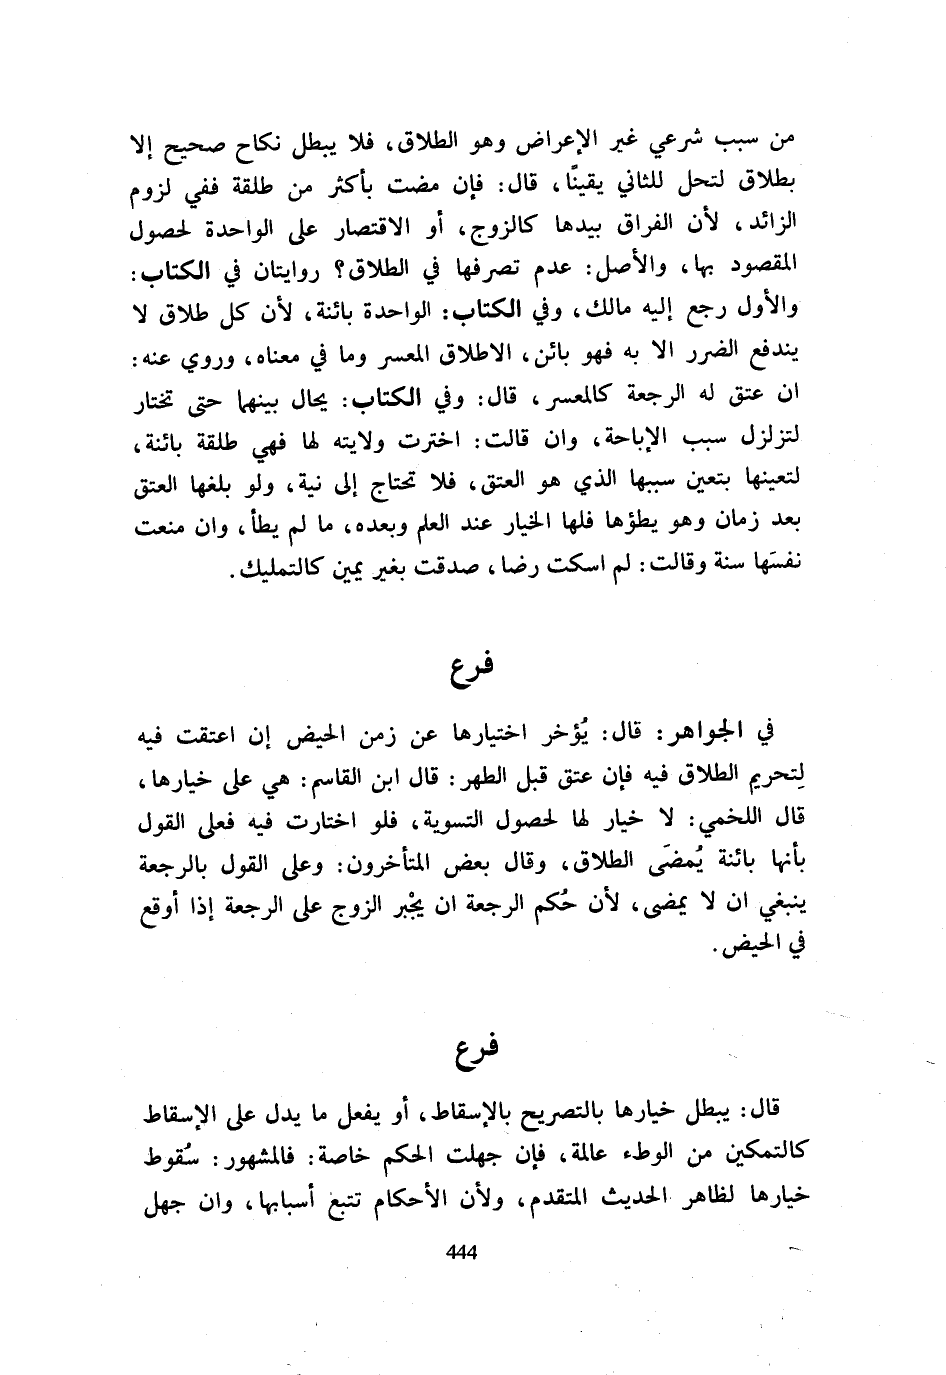 من سبب شرعي غير الإعراض وهو الطلاق، فلا يبطل نكاح صحيح إلا
بطلاق لتحل للثاني يقينًا، قال: فإن مضت بأكثر من طلقة ففي لزوم
الزائد، لأن الفراق بيدها كالزوج، أو الاقتصار على الواحدة لحصول
المقصود بها، والأصل: عدم تصرفها في الطلاق؟ روايتان في الكتاب:
والأول رجع إليه مالك، وفي الكتاب: الواحدة بائنة، لأن كل طلاق لا
يندفع الضرر الا به فهو بائن، الاطلاق المعسر وما في معناه، وروي عنه:
ان عتق له الرجعة كالمعسر، قال: وفي الكتاب: يحال بينهما حتى تختار
لتزلزل سبب الإباحة، وان قالت: اخترت ولايته لها فهي طلقة بائنة،
لتعينها بتعين سببها الذي هو العتق، فلا تحتاج إلى نية، ولو بلغها العتق
بعد زمان وهو يطؤها فلها الخيار عند العلم وبعده، ما لم يطأ، وان منعت
نفسَها سنة وقالت: لم اسكت رضا، صدقت بغير يمين كالتمليك.
فرع
في الجواهر: قال: يُؤخر اختيارها عن زمن الحيض إن اعتقت فيه
لِتحريم الطلاق فيه فإن عتق قبل الطهر: قال ابن القاسم: هي على خيارها،
قال اللخمي: لا خيار لها لحصول التسوية، فلو اختارت فيه فعلى القول
بأنها بائنة يُمضَى الطلاق، وقال بعض المتأخرون: وعلى القول بالرجعة
ينبغي ان لا يمضى، لأن حُكم الرجعة ان يجْبر الزوج على الرجعة إذا أوقع
في الحيض.
فرع
قال: يبطل خيارها بالتصريح بالإسقاط، أو يفعل ما يدل على الإسقاط
كالتمكين من الوطء عالمة، فإن جهلت الحكم خاصة: فالمشهور: سُقوط
خيارها لظاهر الحديث المتقدم، ولأن الأحكام تتبع أسبابها، وان جهل
444